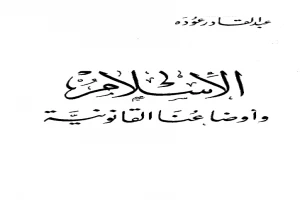 عبد القادر عوده
الإسلام
وأوضاعنا القانونية